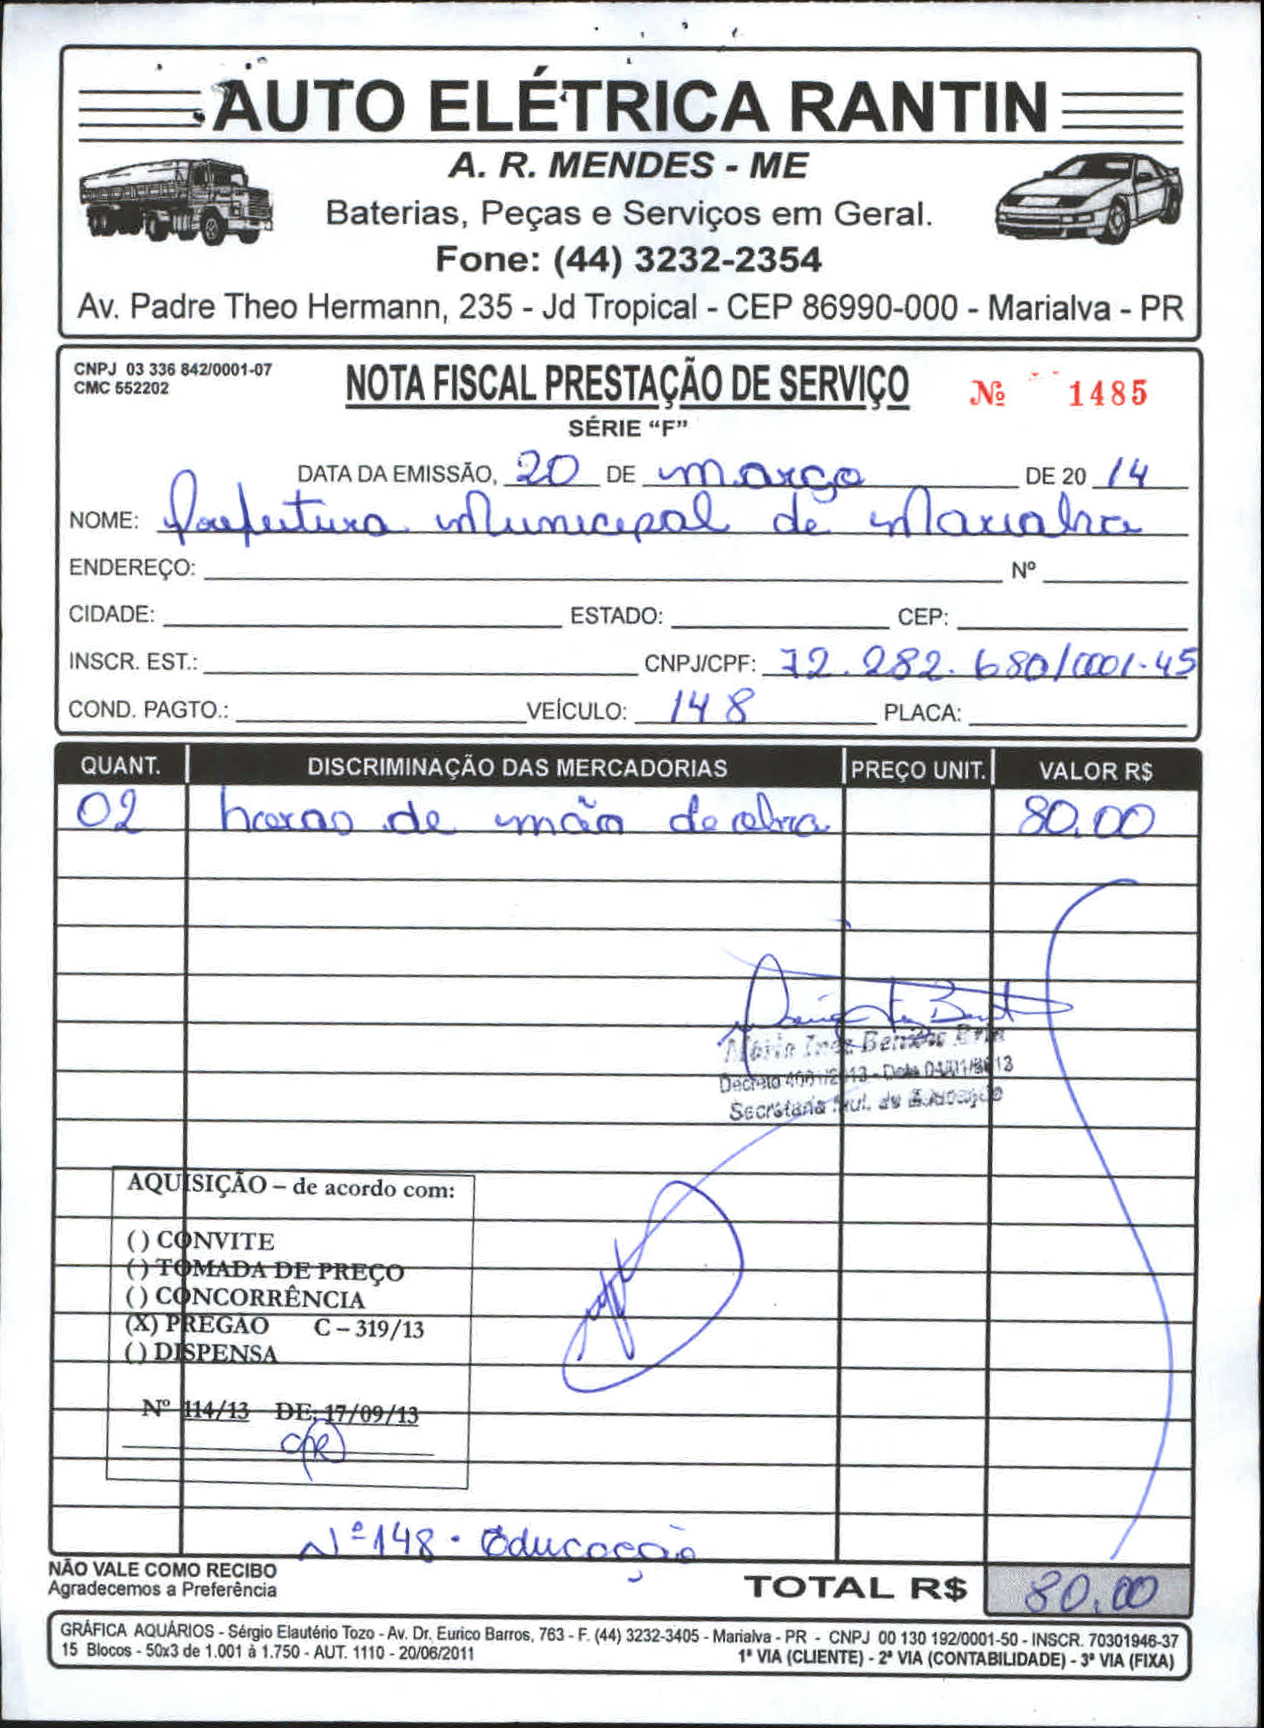 AUTO ELÉTRICA RANTIN
A. R. MENDES - ME
Baterias, Peças e Serviços em Geral.
Fone: (44) 3232-2354
Av. Padre Theo Hermann, 235 - Jd Tropical - CEP 86990-000 - Marialva - PR
CNPJ 03 336 842/0001-07
CMC 552202
NOTA FISCAL PRESTAÇÃO DE SERVIÇO
Nº 1485
SÉRIE "F"
DATA DA EMISSÃO, 20 DE março DE 20 14
NOME: Prefeitura Municipal de Marialva
ENDEREÇO: Nº
CIDADE: ESTADO: CEP:
INSCR. EST.: CNPJ/CPF: 72.282.680/0001-45
COND. PAGTO.: VEÍCULO: 148 PLACA:
QUANT. DISCRIMINAÇÃO DAS MERCADORIAS PREÇO UNIT. VALOR R$
02 horas de mão de obra 80,00
Maria Inez
Decreto
Secretária Mul. de Educação
AQUISIÇÃO – de acordo com:
( ) CONVITE
( ) TOMADA DE PREÇO
( ) CONCORRÊNCIA
(X) PREGAO C – 319/13
( ) DISPENSA
Nº 114/13 DE: 17/09/13
Nº 148 - Educação
NÃO VALE COMO RECIBO
Agradecemos a Preferência
TOTAL R$ 80,00
GRÁFICA AQUÁRIOS - Sérgio Elautério Tozo - Av. Dr. Eurico Barros, 763 - F. (44) 3232-3405 - Marialva - PR - CNPJ 00 130 192/0001-50 - INSCR. 70301946-37
15 Blocos - 50x3 de 1.001 à 1.750 - AUT. 1110 - 20/06/2011
1ª VIA (CLIENTE) - 2ª VIA (CONTABILIDADE) - 3ª VIA (FIXA)